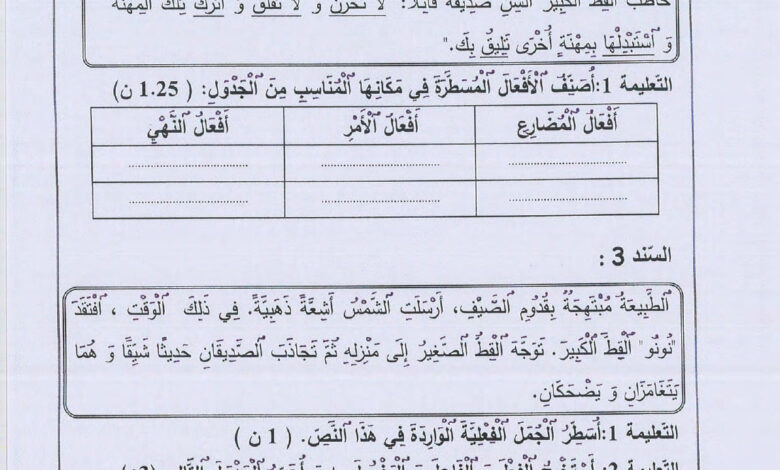 خاطب القط الكبير انس صديقه قائلا: "لا تحزن و لا تقلق و اترك تلك المهنة
وَ ٱسْتَبْدِلْهَا بِمِهْنَةٍ أُخْرَى تَلِيقُ بِكَ."
التعليمة 1:أُصَنِّفُ ٱلْأَفْعَالَ ٱلْمُسَطَّرَةَ فِي مَكَانِهَا ٱلْمُنَاسِبِ مِنَ ٱلْجَدْوَلِ: ( 1.25 ن)
أَفْعَالُ ٱلْمُضَارِعِ أَفْعَالُ ٱلْأَمْرِ أَفْعَالُ ٱلنَّهْيِ
السّند 3 :
ٱلطَّبِيعَةُ مُبْتَهِجَةٌ بِقُدُومِ ٱلصَّيْفِ، أَرْسَلَتِ ٱلشَّمْسُ أَشِعَّةً ذَهَبِيَّةً. فِي ذَلِكَ ٱلْوَقْتِ ، ٱفْتَقَدَ
"نُونُو" ٱلْقِطَّ ٱلْكَبِيرَ. تَوَجَّهَ ٱلْقِطُّ ٱلصَّغِيرُ إِلَى مَنْزِلِهِ ثُمَّ تَجَاذَبَ ٱلصَّدِيقَانِ حَدِيثًا شَيِّقًا وَ هُمَا
يَتَغَامَزَانِ وَ يَضْحَكَانِ.
التعليمة 1:أُسَطِّرُ ٱلْجُمَلَ ٱلْفِعْلِيَّةَ ٱلْوَارِدَةَ فِي هَذَا ٱلنَّصِّ. ( 1 ن )
التعليمة 2: